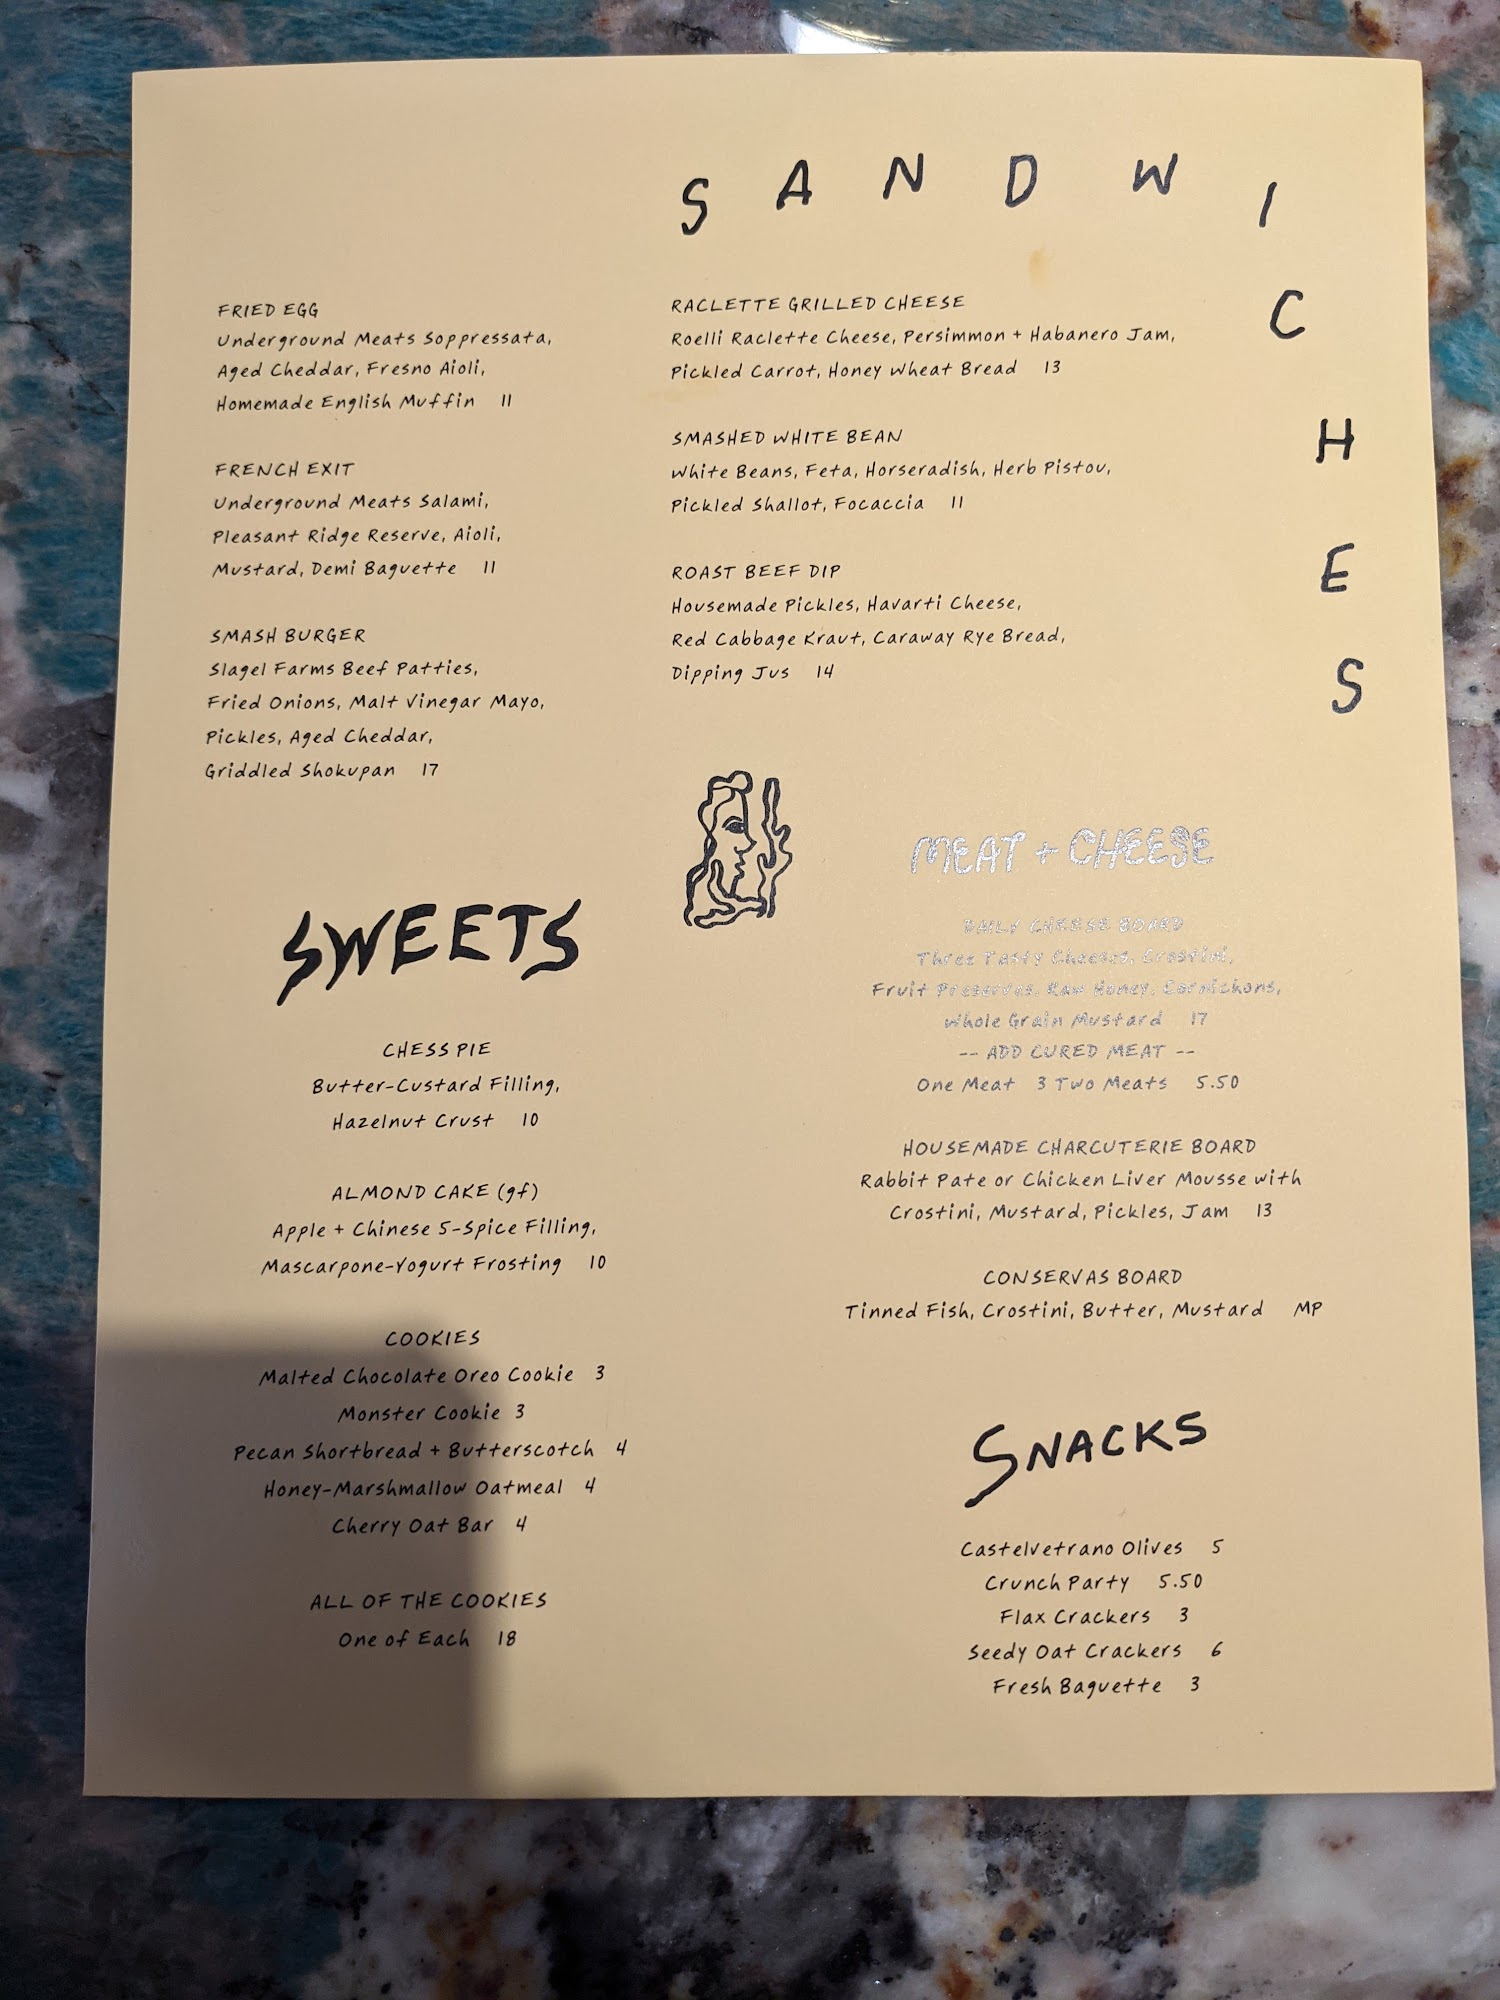 SANDWICHES
FRIED EGG
Underground Meats Soppressata,
Aged Cheddar, Fresno Aioli,
Homemade English Muffin 11
FRENCH EXIT
Underground Meats Salami,
Pleasant Ridge Reserve, Aioli,
Mustard, Demi Baguette 11
SMASH BURGER
Slagel Farms Beef Patties,
Fried Onions, Malt Vinegar Mayo,
Pickles, Aged Cheddar,
Griddled Shokupan 17
RACLETTE GRILLED CHEESE
Roelli Raclette Cheese, Persimmon + Habanero Jam,
Pickled Carrot, Honey Wheat Bread 13
SMASHED WHITE BEAN
White Beans, Feta, Horseradish, Herb Pistou,
Pickled Shallot, Focaccia 11
ROAST BEEF DIP
Housemade Pickles, Havarti Cheese,
Red Cabbage Kraut, Caraway Rye Bread,
Dipping Jus 14
SWEETS
CHESS PIE
Butter-Custard Filling,
Hazelnut Crust 10
ALMOND CAKE (gf)
Apple + Chinese 5-Spice Filling,
Mascarpone-Yogurt Frosting 10
COOKIES
Malted Chocolate Oreo Cookie 3
Monster Cookie 3
Pecan Shortbread + Butterscotch 4
Honey-Marshmallow Oatmeal 4
Cherry Oat Bar 4
ALL OF THE COOKIES
One of Each 18
MEAT + CHEESE
DAILY CHEESE BOARD
Three Tasty Cheeses, Crostini,
Fruit Preserves, Raw Honey, Cornichons,
Whole Grain Mustard 17
-- ADD CURED MEAT --
One Meat 3 Two Meats 5.50
HOUSEMADE CHARCUTERIE BOARD
Rabbit Pate or Chicken Liver Mousse with
Crostini, Mustard, Pickles, Jam 13
CONSERVAS BOARD
Tinned Fish, Crostini, Butter, Mustard MP
SNACKS
Castelvetrano Olives 5
Crunch Party 5.50
Flax Crackers 3
Seedy Oat Crackers 6
Fresh Baguette 3